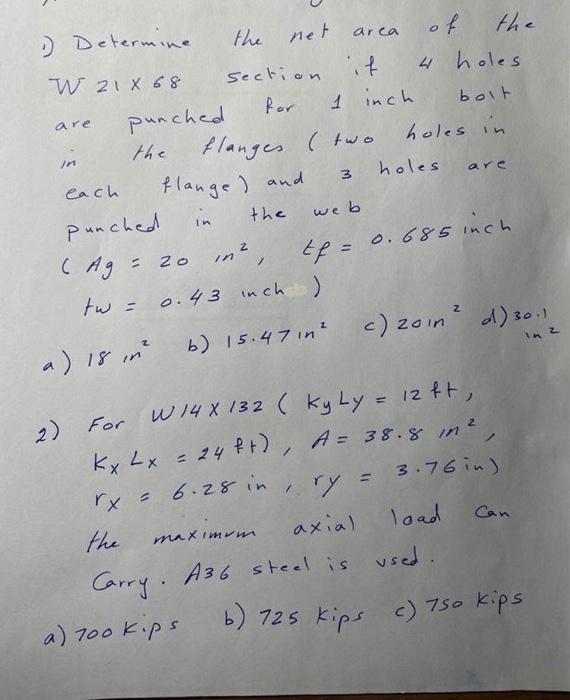 1) Determine the net area of the
W 21 X 68 section if 4 holes
are punched for 1 inch bolt
in the flanges (two holes in
each flange) and 3 holes are
punched in the web
(Ag = 20 in², tf = 0.685 inch
tw = 0.43 inch)
a) 18 in² b) 15.47 in² c) 20 in² d) 30.1 in²
2) For W14 X 132 (KyLy = 12 ft,
KxLx = 24 ft), A = 38.8 in²,
rx = 6.28 in, ry = 3.76 in)
the maximum axial load can
Carry. A36 steel is used.
a) 700 Kips b) 725 Kips c) 750 Kips